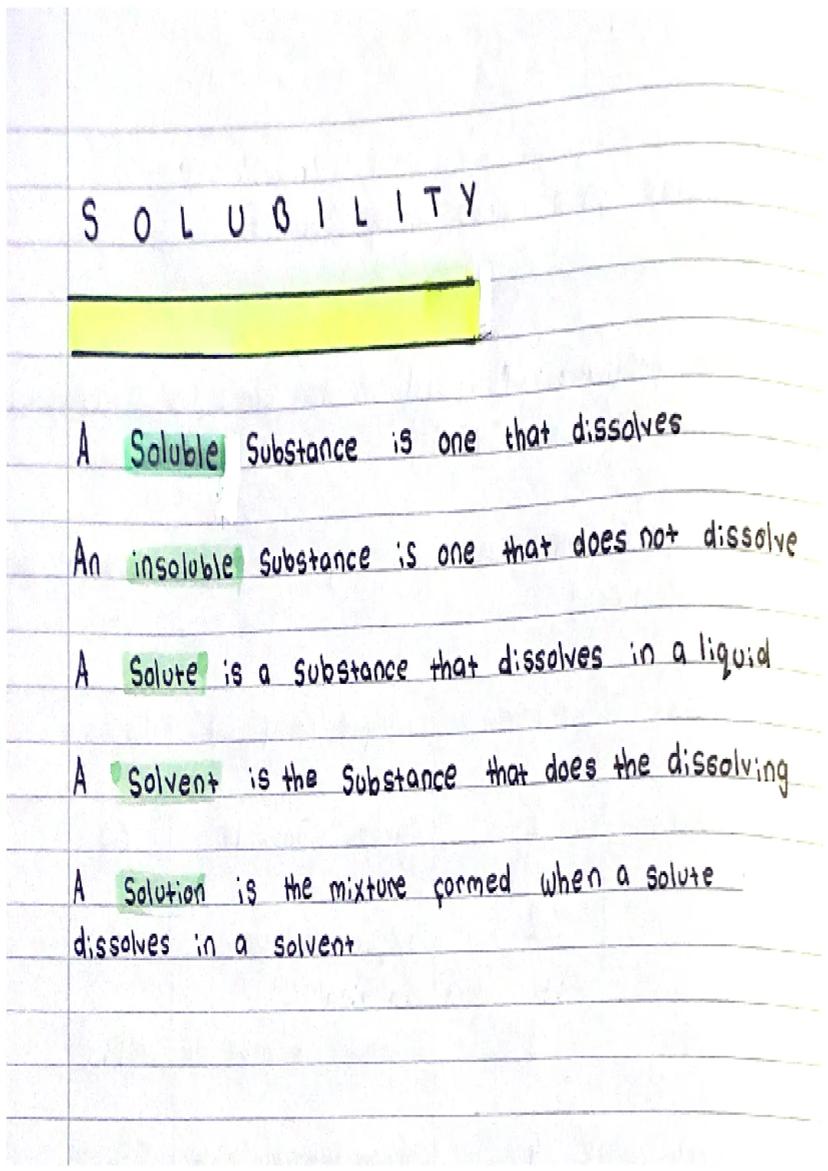 S O L U B I L I T Y
A Soluble Substance is one that dissolves
An insoluble Substance is one that does not dissolve
A Solute is a Substance that dissolves in a liquid
A Solvent is the Substance that does the dissolving
A Solution is the mixture formed when a solute
dissolves in a solvent